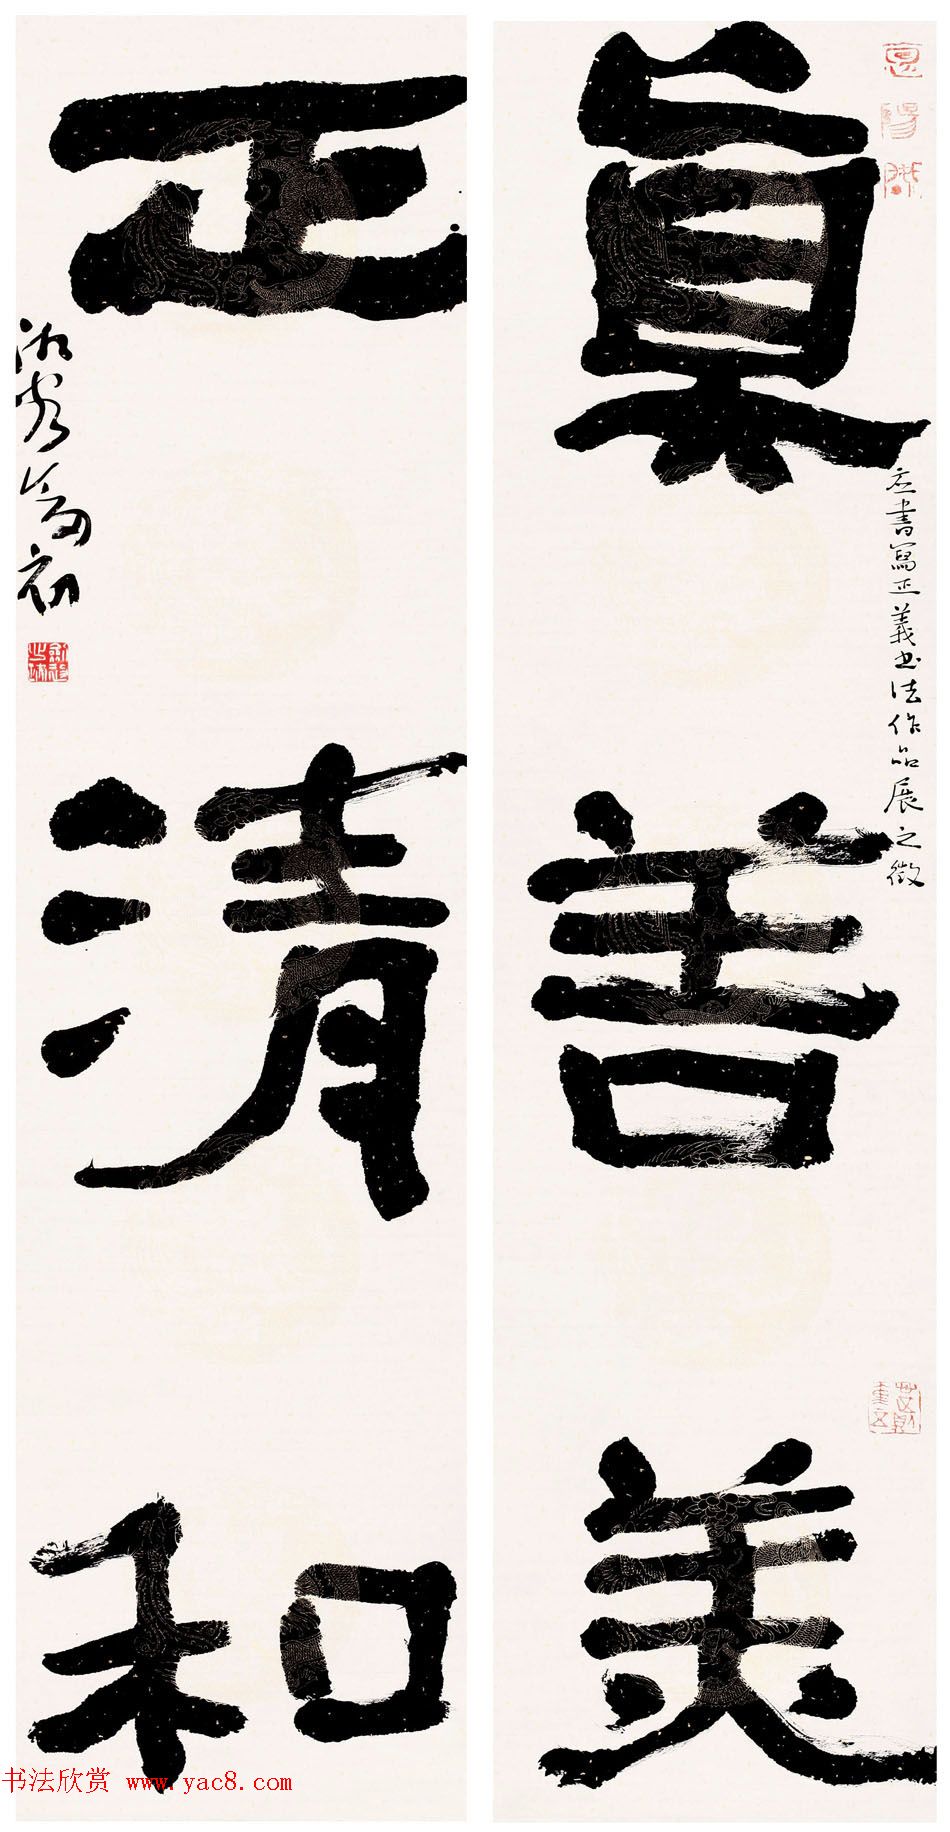 真善美
应書寫正義书法作品展之徵
正清和
书法欣赏 www.yac8.com